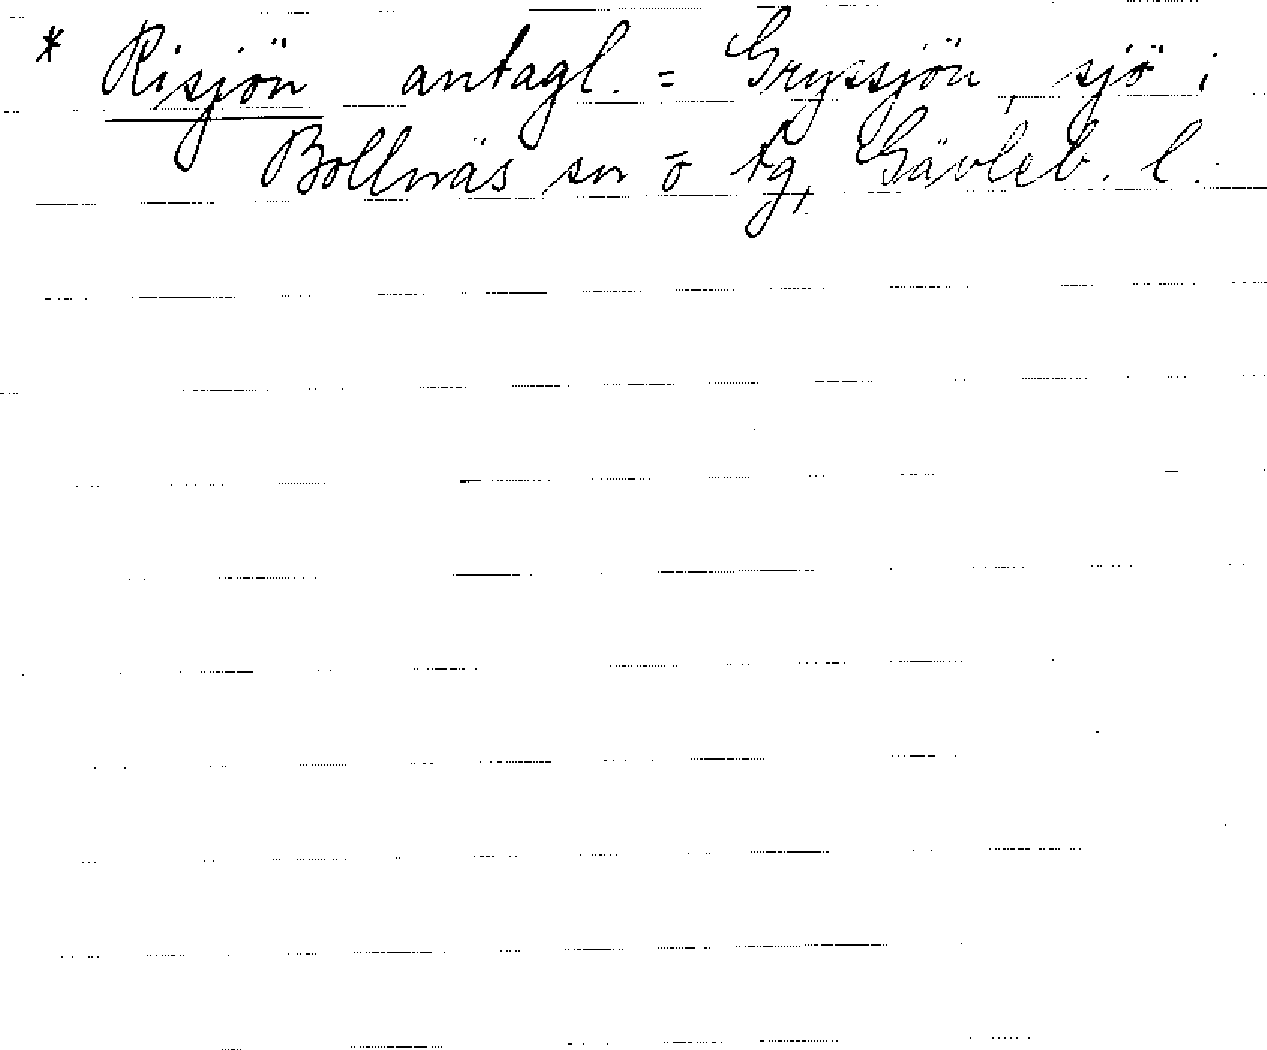 * Risjön antagl. = Gryssjön, sjö i
Bollnäs sn o tg, Gävleb. l.